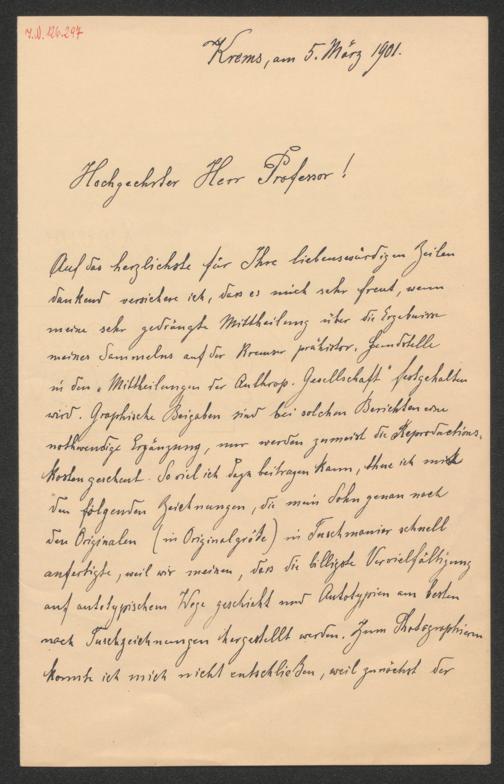 J.N. 126.297
Krems, am 5. März 1901.
Hochgeehrter Herr Professor!
Auf das herzlichste für Ihre liebenswürdigen Zeilen
dankend versichere ich, dass es mich sehr freut, wenn
meine sehr gedrängte Mittheilung über die Ergebnisse
meines Sammelns auf der Kremser prähistor. Fundstelle
in den „Mittheilungen der Anthrop. Gesellschaft“ festgehalten
wird. Graphische Beigaben sind bei solchen Berichten eine
nothwendige Ergänzung, nur werden zumeist die Reproductions-
kosten gescheut. Soviel ich dazu beitragen kann, thue ich mit
den folgenden Zeichnungen, die mein Sohn genau nach
den Originalen (in Originalgröße) in Tuschmanier schnell
anfertigte, weil wir meinen, dass die billigste Vervielfältigung
auf autotypischem Wege geschieht und Autotypien am besten
nach Tuschzeichnungen hergestellt werden. Zum Photographieren
konnte ich mich nicht entschließen, weil zunächst der